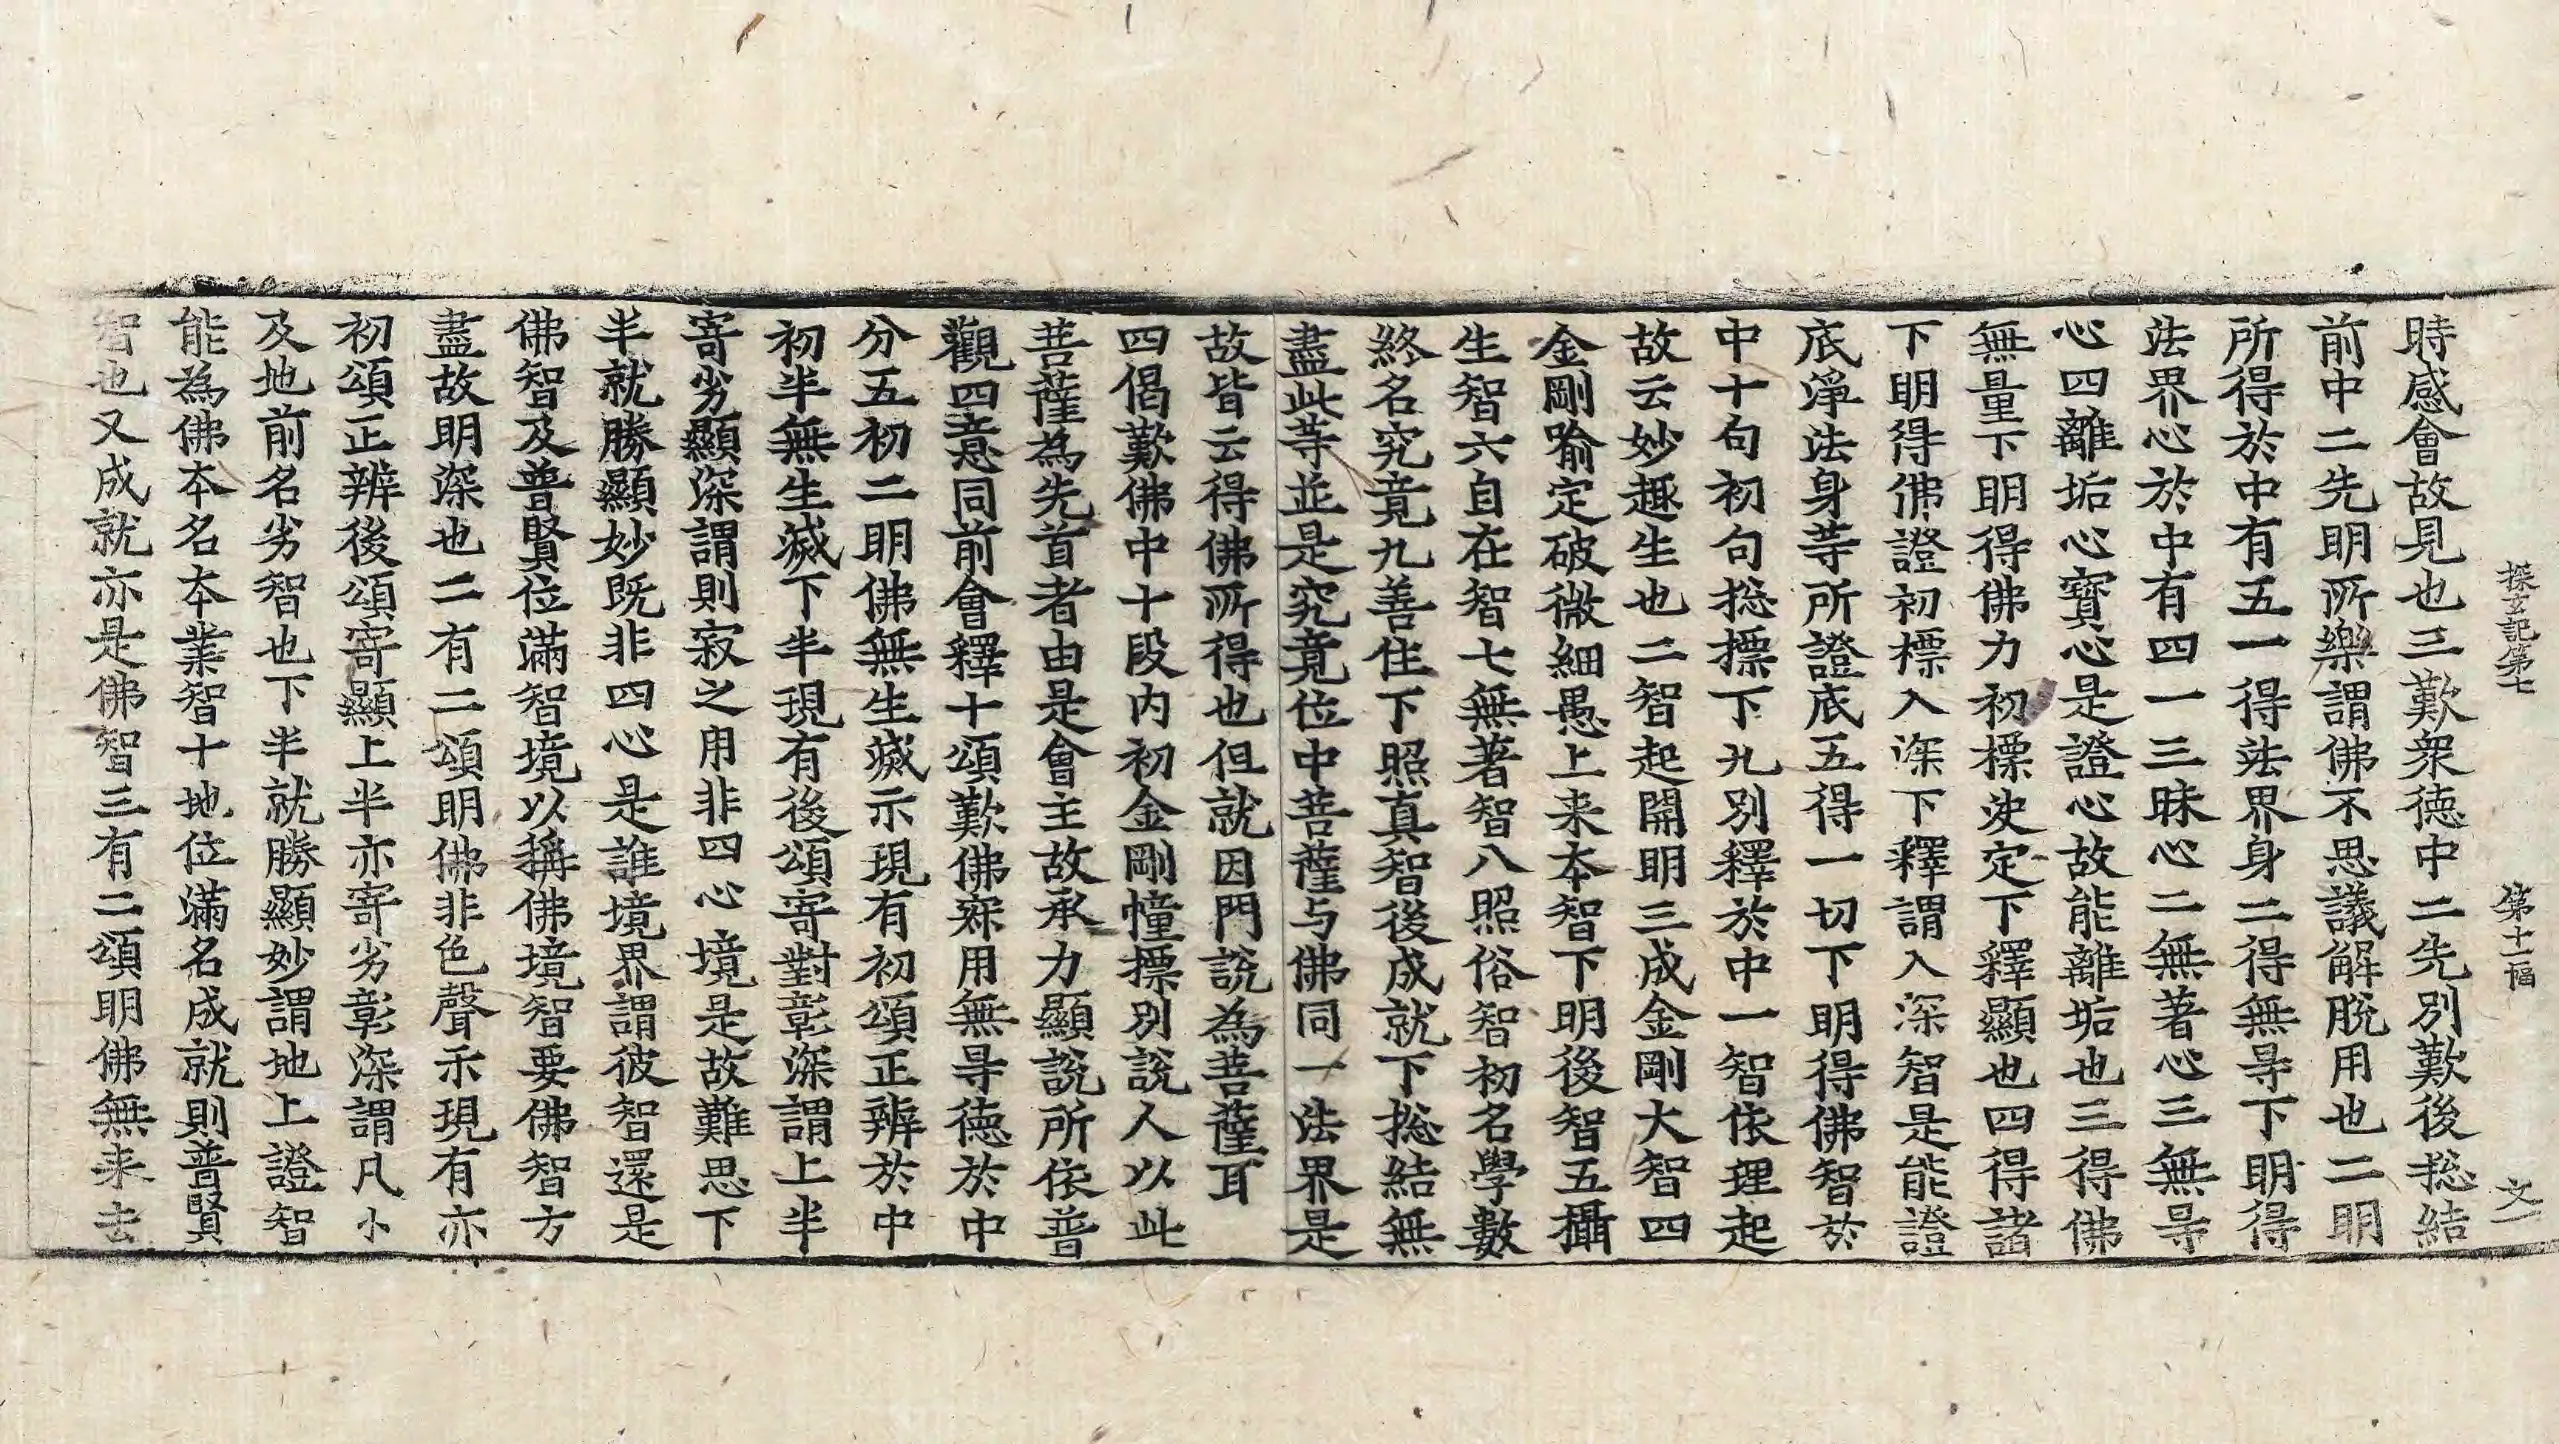 探玄記第七 第十一幅 文一
時感會故見也三歎衆德中二先別歎後捴結
前中二先明所樂謂佛不思議解脫用也二明
所得於中有五一得法界身二得無㝵下明得
法界心於中有四一三昧心二無著心三無㝵
心四離垢心心寶心是證心故能離垢也三得佛
無量下明得佛力初標决定下釋顯也四得諸
下明得佛證初標入深下釋謂入深智是能證
底淨法身等所證底五得一切下明得佛智於
中十句初句捴摽下九別釋於中一智依理起
故云妙趣生也二智起開明三成金剛大智四
金剛喻定破微細愚上来本智下明後智五攝
生智六自在智七無著智八照俗智初名學數
終名究竟九善住下照真智後成就下捴結無
盡此等並是究竟位中菩薩与佛同一法界是
故皆云得佛所得也但就因門說為菩薩耳
四偈歎佛中十段内初金剛幢摽別說人以此
菩薩為先首者由是會主故承力顯說所依普
觀四意同前會釋十頌歎佛寂用無㝵德於中
分五初二明佛無生滅示現有初頌正辨於中
初半無生滅下半現有後頌寄對彰深謂上半
寄劣顯深謂則寂之用非四心境是故難思下
半就勝顯妙既非四心是誰境界謂彼智還是
佛智及普賢位滿智境以稱佛境智要佛智方
盡故明深也二有二頌明佛非色聲示現有亦
初頌正辨後頌寄顯上半亦寄劣彰深謂凡小
及地前名劣智也下半就勝顯妙謂地上證智
能為佛本名本業智十地位滿名成就則普賢
智也又成就亦是佛智三有二頌明佛無来去